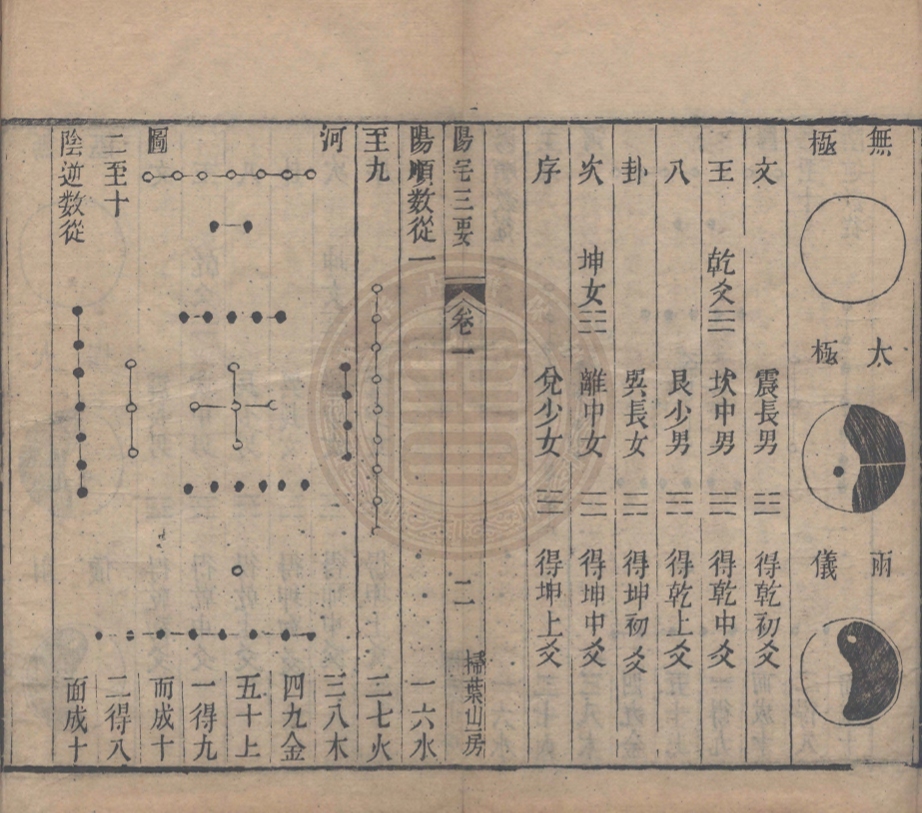 無極
太極
兩儀
文王八卦次序
震長男 ☳ 得乾初爻
乾爻☰ 坎中男 ☵ 得乾中爻
艮少男 ☶ 得乾上爻
巽長女 ☴ 得坤初爻
坤女☷ 離中女 ☲ 得坤中爻
兌少女 ☱ 得坤上爻
陽宅三要 卷一 二 掃葉山房
陽順数從一
至九
河圖
二至十
陰逆数從
一六水
二七火
三八木
四九金
五十上
一得九
而成十
二得八
面成十